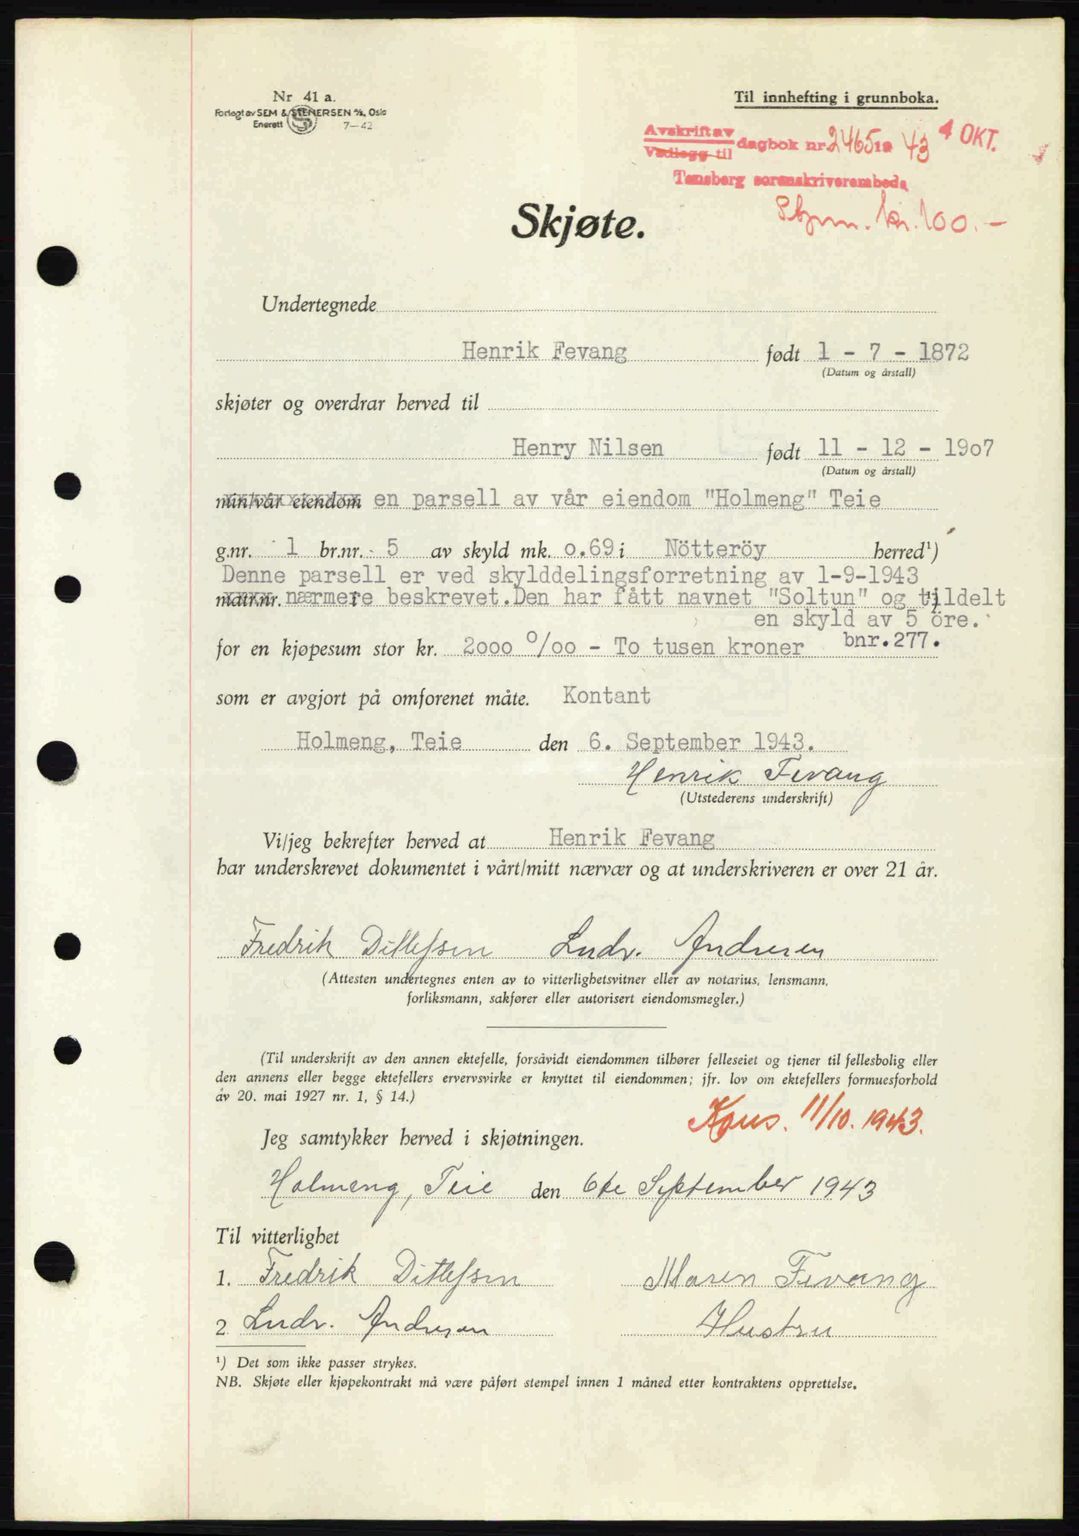 Nr 41 a.
Forlagt av SEM & STENERSEN A/S, Oslo
Enerett 7-42
Til innhefting i grunnboka.
Avskrift av
Vedlegg til dagbok nr 2465 19 43 4 OKT.
Tønsberg sorenskriverembede
Stpm. kr. 100.-
Skjøte.
Undertegnede
Henrik Fevang født 1 - 7 - 1872
(Datum og årstall)
skjøter og overdrar herved til
Henry Nilsen født 11 - 12 - 19o7
(Datum og årstall)
min/vår eiendom en parsell av vår eiendom "Holmeng" Teie
g.nr. 1 br.nr. 5 av skyld mk. o.69 i Nötteröy herred¹)
Denne parsell er ved skylddelingsforretning av 1-9-1943
matr.nr. nærmere beskrevet.Den har fått navnet "Soltun" og tildelt
en skyld av 5 öre.
for en kjøpesum stor kr. 2ooo o/oo - To tusen kroner bnr.277.
som er avgjort på omforenet måte. Kontant
Holmeng, Teie den 6. September 1943.
Henrik Fevang
(Utstederens underskrift)
Vi/jeg bekrefter herved at Henrik Fevang
har underskrevet dokumentet i vårt/mitt nærvær og at underskriveren er over 21 år.
Fredrik Ditlefsen Ludv. Andresen
(Attesten undertegnes enten av to vitterlighetsvitner eller av notarius, lensmann,
forliksmann, sakfører eller autorisert eiendomsmegler.)
(Til underskrift av den annen ektefelle, forsåvidt eiendommen tilhører felleseiet og tjener til fellesbolig eller
den annens eller begge ektefellers ervervsvirke er knyttet til eiendommen; jfr. lov om ektefellers formuesforhold
av 20. mai 1927 nr. 1, § 14.)
Kons. 11/10. 1943.
Jeg samtykker herved i skjøtningen.
Holmeng, Teie den 6te September 1943
Til vitterlighet
1. Fredrik Ditlefsen Maren Fevang
2 Ludv. Andresen Hustru
¹) Det som ikke passer strykes.
NB. Skjøte eller kjøpekontrakt må være påført stempel innen 1 måned etter kontraktens opprettelse.